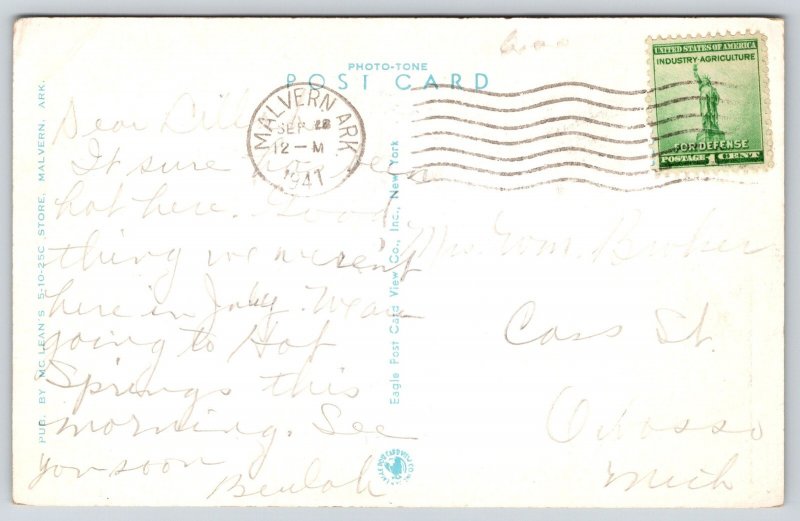 PHOTO-TONE
POST CARD
UNITED STATES OF AMERICA
INDUSTRY-AGRICULTURE
FOR DEFENSE
POSTAGE 1 CENT
MALVERN ARK.
SEP
12-M
1941
PUB. BY MC LEAN'S 5-10-25C STORE, MALVERN, ARK.
Eagle Post Card View Co., Inc., New York
Dear
It sure has been
hot here. Good
thing we weren't
here in July. We are
going to Hot
Springs this
morning. See
you soon
Beulah
Mrs. Wm.
Cass St.
Owosso
Mich